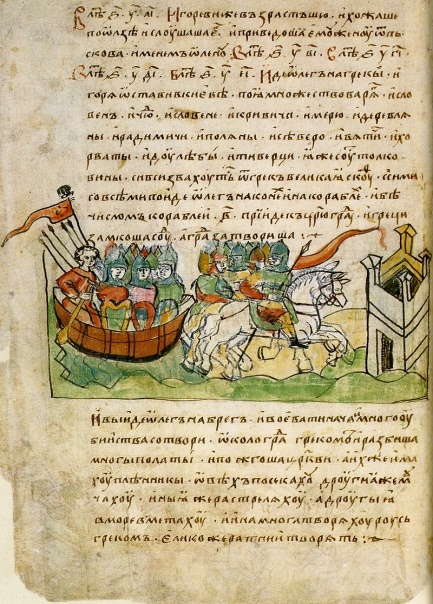 В лѣⷮ ҂ѕ҃. у҃. аі҃. Игореви жевъзрастъшю. и хожаше
по ѡлзѣ и слоушаша е. и приведоша емоу женоу ѿ пь
скова. именемъ ѡлено. В лѣⷮ ҂ѕ҃. у҃ ві҃. В лѣⷮ ҂ѕ҃. у҃ гі҃.
В лѣⷮ ҂ѕ҃. у҃ ді҃. В лѣⷮ ҂ѕ҃. у҃ еі҃. Иде ѡлегъ на грекы. и
горѧ ѡстави въ киевѣ. поꙗⷤ множество варѧⷢ. и сло
венъ. и чюⷣ. и словене. и кривичи. и мерю. и деревлѧ
ны. и радимичи. и полѧны. и севѣро. и вѧтиⷱ. и хо
рваты. и доулѣбы. и тиверци. ꙗже соуⷮ толко
вины. си вси звахоуть ѿ грекъ великаꙗ скоуⷴ. с сими
со всѣми поиде ѡлегъ на конеⷯ и на кораблеⷯ. и бѣ
числомъ кораблеи. ҂в҃. прїиде къ цр҃юграⷣ. и греци
замкоша соуⷣ. а граⷣ затвориша :~
И выиде ѡлегъ на брегъ. и воевати нача. и много оу
бииства сотвори. ѡколо граⷣ грекомъ. и разбиша
многы полаты. и пожгоша црк҃ви. а иⷯ же има
хоуⷮ плѣнникы. ѡвѣхъ посекахоу. дроугиⷯ же моу
чахоу. иныⷯ же растрелѧхоу. а дроугыꙗ
в море вметахоу. и ина многа творѧхоу роусь
грекомъ. елико же ратнии творѧть :~